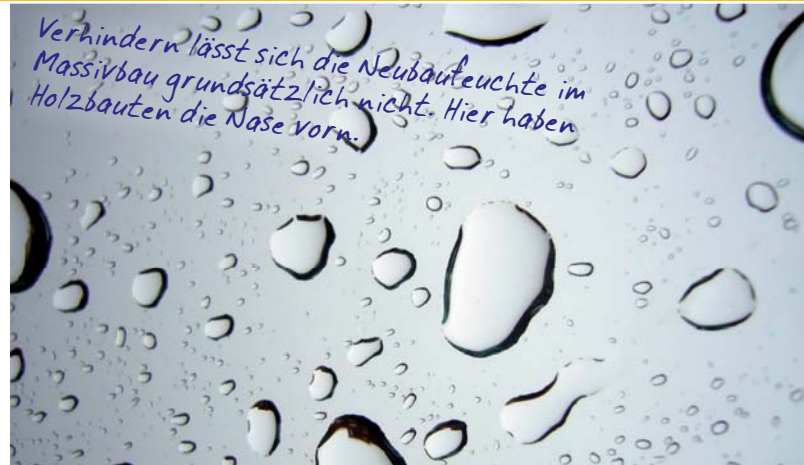 Verhindern lässt sich die Neubaufeuchte im
Massivbau grundsätzlich nicht. Hier haben
Holzbauten die Nase vorn.